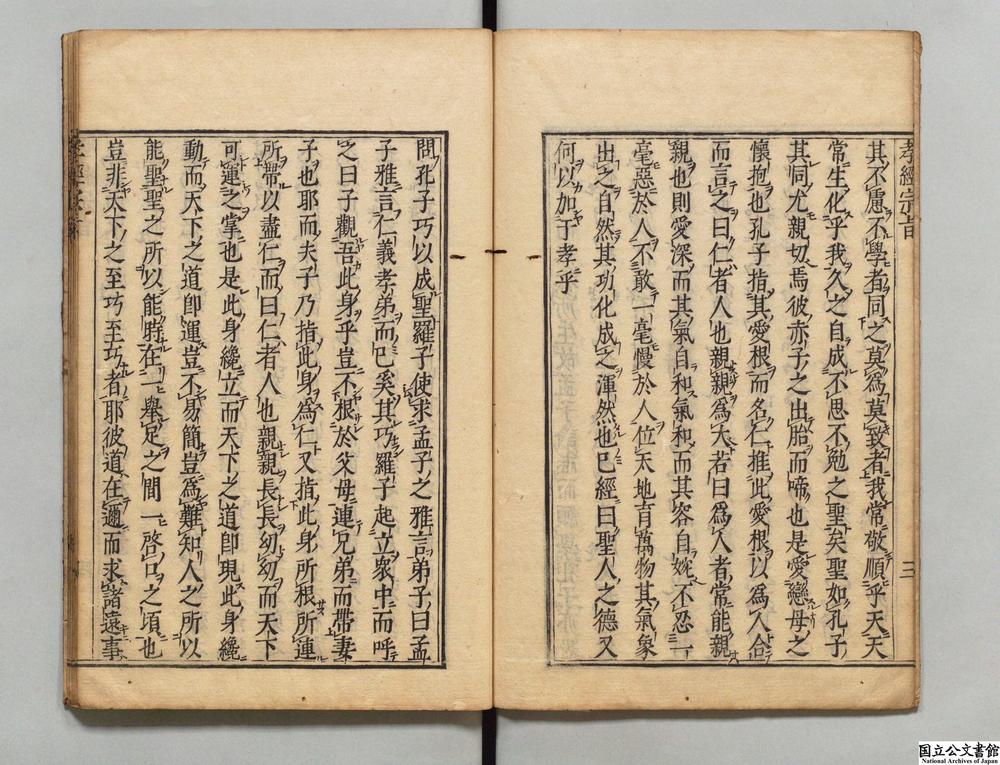 孝經宗旨
三
其不慮不學者同之莫爲莫致者我常敬順乎天天
常生化乎我久之自成不思不勉之聖矣聖如孔子
其同尤親切焉彼赤子之出胎而啼也是愛戀母之
懷抱也孔子指其愛根而名仁推此愛根以爲人合
而言之曰仁者人也親親爲大若曰爲人者常能親
親也則愛深而其氣自和氣和而其容自婉不忍一
毫惡於人不敢一毫慢於人位天地育萬物其氣象
出之自然其功化成之渾然也已經曰聖人之德又
何以加于孝乎
問孔子巧以成聖羅子使求孟子之雅言弟子曰孟
子雅言仁義孝弟而已奚其巧羅子起立衆中而呼
之曰子觀吾此身乎豈不根於父母連兄弟而帶妻
子也耶而夫子乃指此身爲仁又指此身所根所連
所帶以盡仁而曰仁者人也親親長長幼幼而天下
可運之掌也是此身纔立而天下之道卽現此身纔
動而天下之道卽運豈不易簡豈爲難知人之所以
能聖聖之所以能時在一舉足之間一啓口之頃也
豈非天下之至巧至巧者耶彼道在邇而求諸遠事
国立公文書館
National Archives of Japan